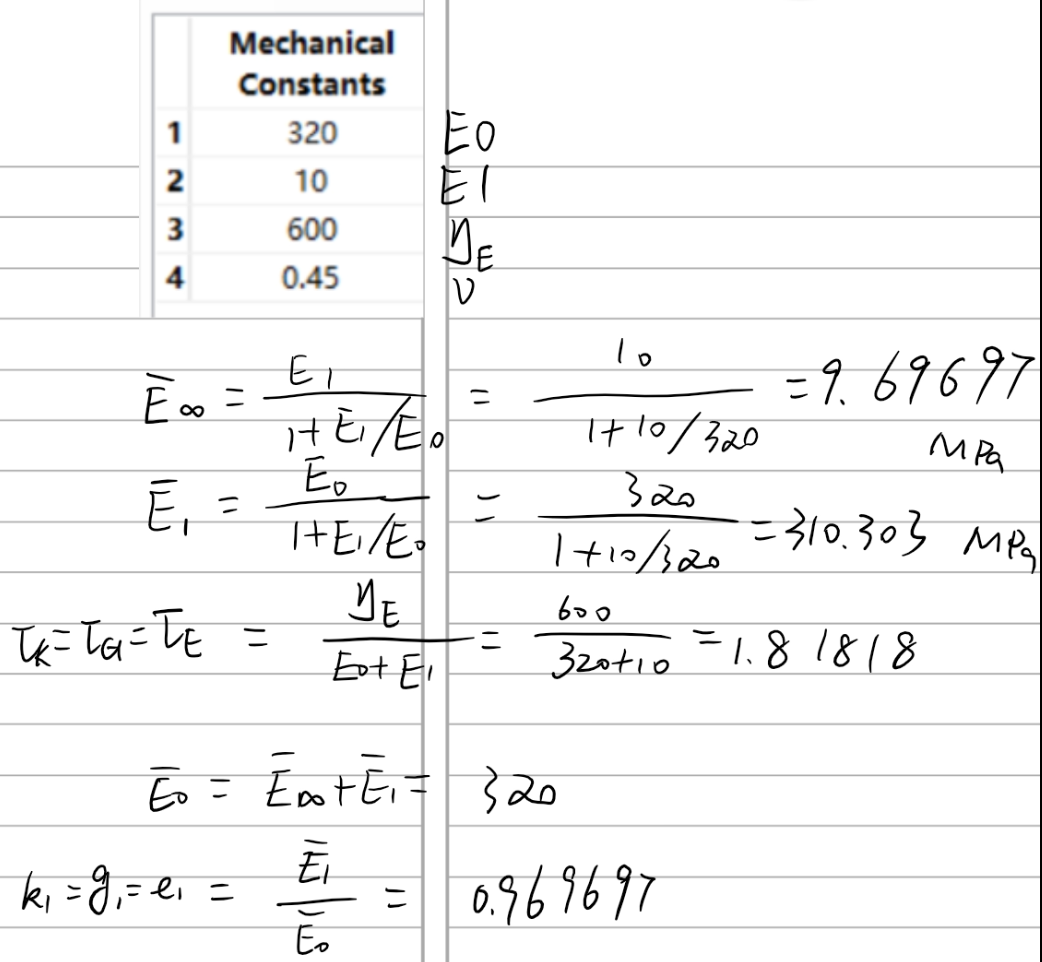 Mechanical
Constants
1 320 E0
2 10 E1
3 600 η_E
4 0.45 ν
Ē∞ = E₁/(1+E₁/E₀) = 10/(1+10/320) = 9.69697 MPa
Ē₁ = E₀/(1+E₁/E₀) = 320/(1+10/320) = 310.303 MPa
τ_K = τ_G = τ_E = η_E/(E₀+E₁) = 600/(320+10) = 1.81818
Ē₀ = Ē∞ + Ē₁ = 320
k₁ = g₁ = e₁ = Ē₁/Ē₀ = 0.969697